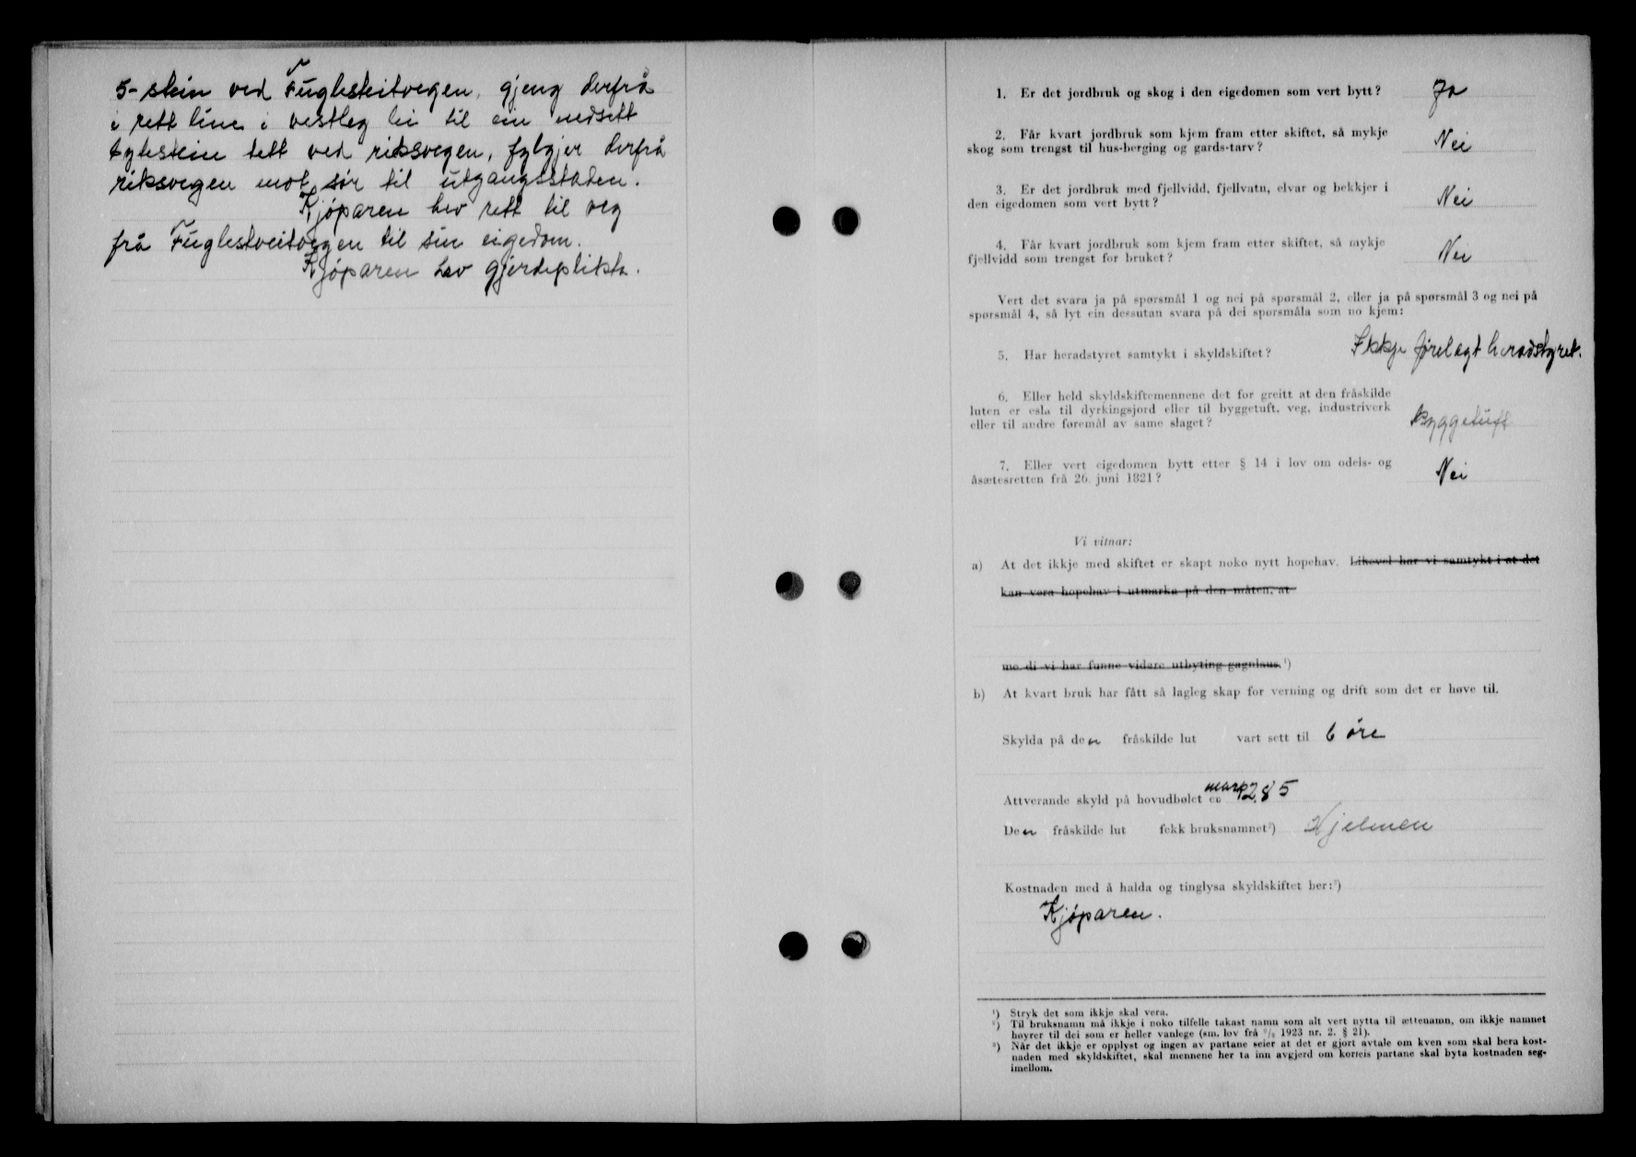 5- stein ved Fuglestveitvegen, gjeng derfrå
i rett line i vestleg lei til ein nedsett
bytestein tett ved riksvegen, fylgjer derfrå
riksvegen mot sør til utgangsstaden.
Kjøparen hev rett til veg
frå Fuglestveitvegen til sin eigedom.
Kjøparen hev gjerdeplikta.
1. Er det jordbruk og skog i den eigedomen som vert bytt? Ja
2. Får kvart jordbruk som kjem fram etter skiftet, så mykje
skog som trengst til hus-berging og gards-tarv? Nei
3. Er det jordbruk med fjellvidd, fjellvatn, elvar og bekkjer i
den eigedomen som vert bytt? Nei
4. Får kvart jordbruk som kjem fram etter skiftet, så mykje
fjellvidd som trengst for bruket? Nei
Vert det svara ja på spørsmål 1 og nei på spørsmål 2, eller ja på spørsmål 3 og nei på
spørsmål 4, så lyt ein dessutan svara på dei spørsmåla som no kjem:
5. Har heradstyret samtykt i skyldskiftet? Ikkje førelagt heradstyret.
6. Eller held skyldskiftemennene det for greitt at den fråskilde
luten er esla til dyrkingsjord eller til byggetuft, veg, industriverk
eller til andre føremål av same slaget? byggetuft
7. Eller vert eigedomen bytt etter § 14 i lov om odels- og
åsætesretten frå 26. juni 1821? Nei
Vi vitnar:
a) At det ikkje med skiftet er skapt noko nytt hopehav. Likevel har vi samtykt i at det
kan vera hopehav i utmarka på den måten, at
me di vi har funne vidare utbyting gagnlaus.¹)
b) At kvart bruk har fått så lagleg skap for verning og drift som det er høve til.
Skylda på den fråskilde lut vart sett til 6 øre
Attverande skyld på hovudbølet er mark 2,85
Den fråskilde lut fekk bruksnamnet²) Hjelmen
Kostnaden med å halda og tinglysa skyldskiftet ber:³)
Kjøparen.
¹) Stryk det som ikkje skal vera.
²) Til bruksnamn må ikkje i noko tilfelle takast namn som alt vert nytta til ættenamn, om ikkje namnet
høyrer til dei som er heller vanlege (sm. lov frå 9/2 1923 nr. 2. § 21).
³) Når det ikkje er opplyst og ingen av partane seier at det er gjort avtale om kven som skal bera kost-
naden med skyldskiftet, skal mennene her ta inn avgjerd om korleis partane skal byta kostnaden seg-
imellom.